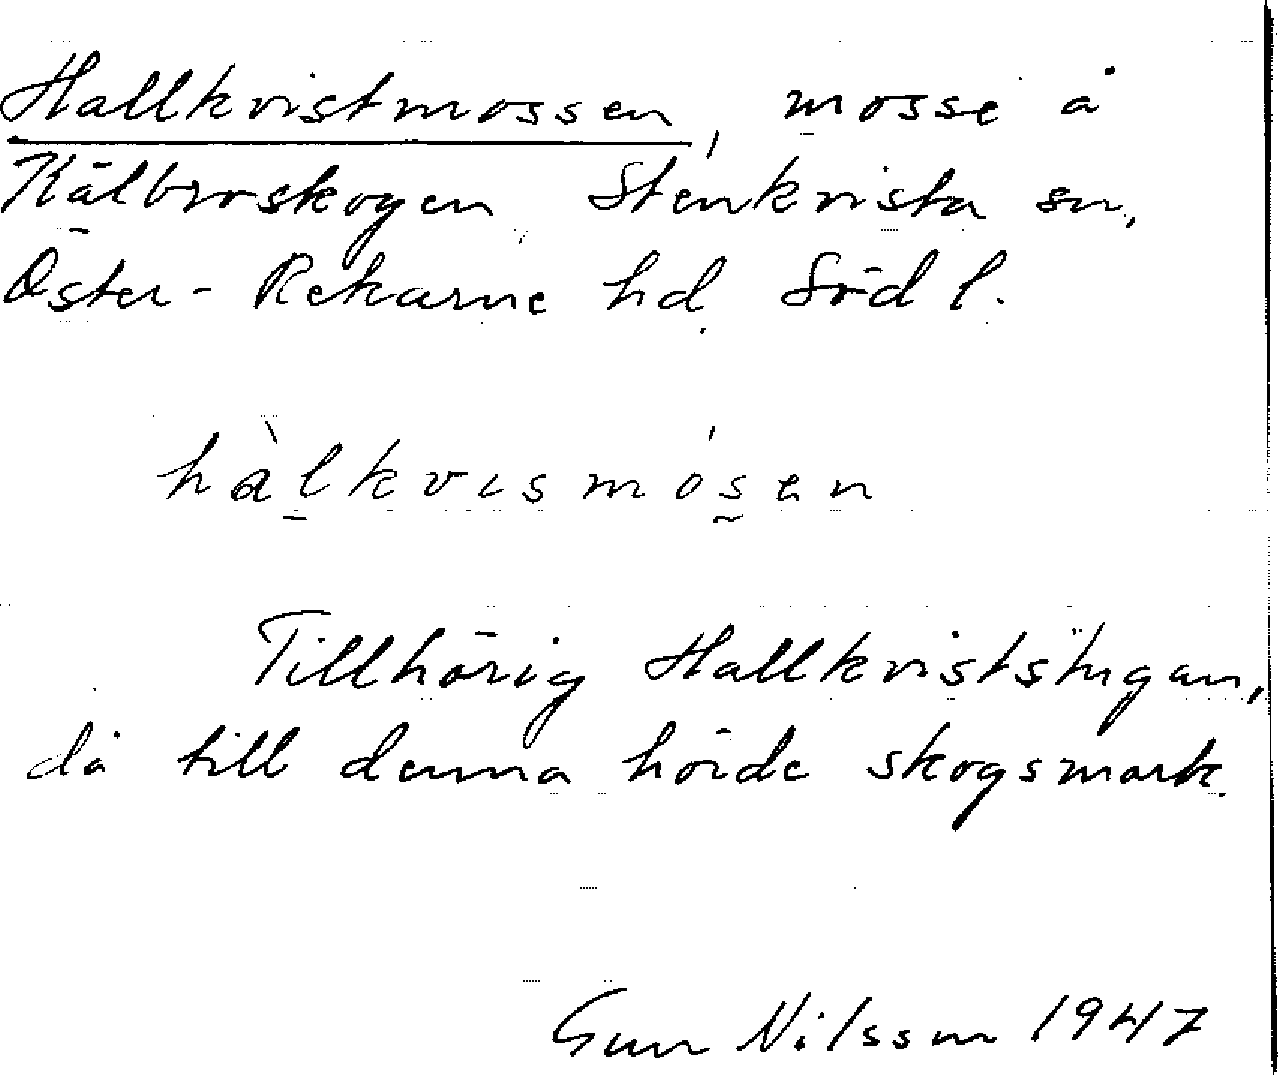 Hallkvistmossen, mosse å
Kälbroskogen, Stenkvista sn,
Öster-Rekarne hd. Söd l.
hàlkvısmósen
Tillhörig Hallkviststugan,
då till denna hörde skogsmark.
Gun Nilsson 1947